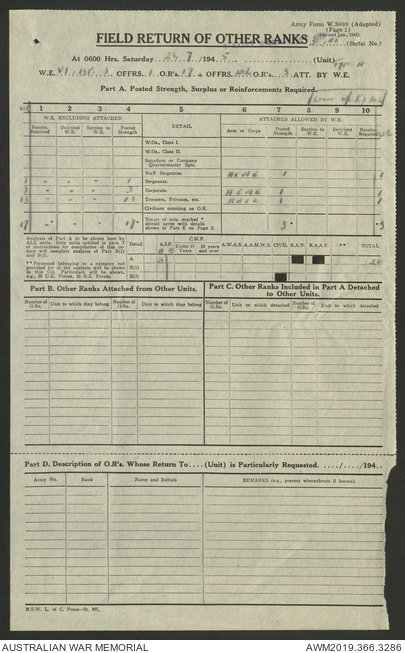 Army Form W.3009 (Adapted)
(Page 1)
FIELD RETURN OF OTHER RANKS
(Serial No.)
At 0600 Hrs. Saturday 7 /194 5 (Unit)
W.E. OFFRS. O.R's. + OFFRS. O.R's. 3 ATT. BY W.E.
Part A. Posted Strength, Surplus or Reinforcements Required.
1 2 3 4 5 6 7 8 9 10
W.E. EXCLUDING ATTACHED DETAIL ATTACHED ALLOWED BY W.E.
Reinfts. Required Deficient W.E. Surplus to W.E. Posted Strength Arm or Corps Posted Strength Surplus to W.E. Deficient W.E. Reinfts. Required
W.Os., Class I.
W.Os., Class II.
Squadron or Company Quartermaster Sgts.
Staff Sergeants. 1
1 - - 1 Sergeants.
3 - - 3 Corporals. 1
13 - - 13 Troopers, Privates, etc. 1
Civilians counting as O.R.
17 - - 17 Totals of cols. marked * should agree with details shown in Part E on Page 2. 3
Analysis of Part A to be shown here by
ALL units. Only units notified in para. 7
of instructions for compilation of this re-
turn will complete analysis of Part B(1)
and B(2).
**Personnel belonging to a category not
provided for in the analysis will be shown
in this Col. Particulars will be shown,
e.g., 20 U.K. Forces, 50 N.Z. Forces.
Detail A.I.F. C.M.F. Under 19 years 19 years and over A.W.A.S. A.A.M.W.S. CIVIL R.A.N. R.A.A.F. ** TOTAL
A 20
B(1)
B(2)
Part B. Other Ranks Attached from Other Units.
Part C. Other Ranks Included in Part A Detached
to Other Units.
Number of O.Rs. Unit to which they belong Number of O.Rs. Unit to which they belong Number of O.Rs. Unit to which detached Number of O.Rs. Unit to which detached
Part D. Description of O.R's. Whose Return To.....(Unit) is Particularly Requested. ..../..../194..
Army No. Rank Name and Initials REMARKS (e.g., present whereabouts if known).
N.S.W. L. of C. Press
AUSTRALIAN WAR MEMORIAL AWM2019.366.3286